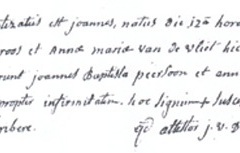 tizatus est joannes, natus die 12â hora
roos et Annæ mariæ van de vliet hie
runt joannes Baptista peerson et ann
propter infirmitatem. hoc signum + susce
mbere. qd attestor j. v. D